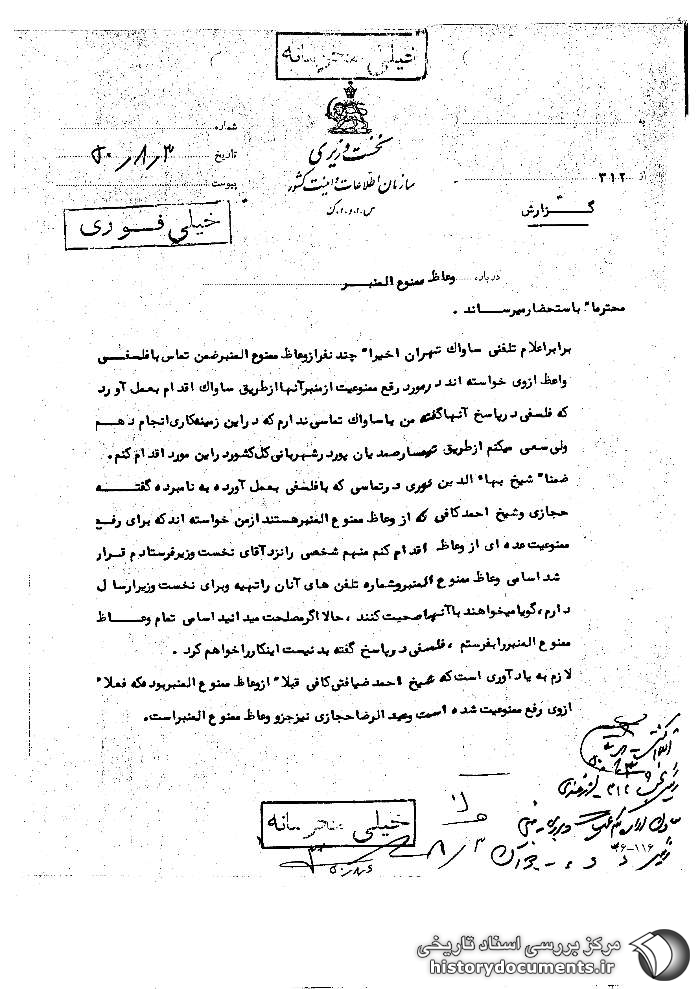 خیلی محرمانه
نخست وزیری
سازمان اطلاعات و امنیت کشور
س.ا.و.ا.ک
شماره
تاریخ ۵۰/۸/۳
پیوست
خیلی فوری
به
از ۳۱۲
گزارش
درباره وعاظ ممنوع المنبر
محترما" باستحضار میرساند .
برابر اعلام تلفنی ساواك تهران اخیرا" چند نفر از وعاظ ممنوع المنبر ضمن تماس با فلسفی
واعظ از وی خواسته اند در مورد رفع ممنوعیت از منبر آنها از طریق ساواك اقدام بعمل آورد
که فلسفی در پاسخ آنها گفته من با ساواك تماسی ندارم که در این زمینه کاری انجام دهم
ولی سعی میکنم از طریق تیمسار صمدیان پور در شهربانی کل کشور در این مورد اقدام کنم .
ضمنا" شیخ بهاء الدین نوری در تماسی که با فلسفی بعمل آورده به نامبرده گفته
حجازی و شیخ احمد کافی که از وعاظ ممنوع المنبر هستند از من خواسته اند که برای رفع
ممنوعیت عده ای از وعاظ اقدام کنم منهم شخصی را نزد آقای نخست وزیر فرستادم قرار
شد اسامی وعاظ ممنوع المنبر و شماره تلفن های آنان را تهیه و برای نخست وزیر ارسال
دارم ، گویا میخواهند با آنها صحبت کنند ، حالا اگر مصلحت میدانید اسامی تمام وعاظ
ممنوع المنبر را بفرستم ، فلسفی در پاسخ گفته بد نیست اینکار را خواهم کرد .
لازم به یادآوری است که شیخ احمد ضیافتی کافی قبلا" از وعاظ ممنوع المنبر بوده که فعلا"
از وی رفع ممنوعیت شده است و عبدالرضا حجازی نیز جزو وعاظ ممنوع المنبر است .
خیلی محرمانه
۳۶-۱۱۶
مرکز بررسی اسناد تاریخی
historydocuments.ir